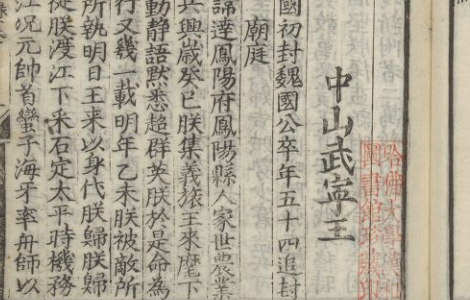 中山武寧王
國初封魏國公卒年五十四追封
廟庭
諱逹鳳陽府鳳陽縣人家世農業
共興歲癸巳朕集義旅王來麾下
動静語默悉超群英朕於是命為
行又幾一載明年乙未朕被敵所
所執明日王来以身代朕歸朕歸
從朕渡江下采石定太平時機務
江况元帥首蠻子海牙率舟師以